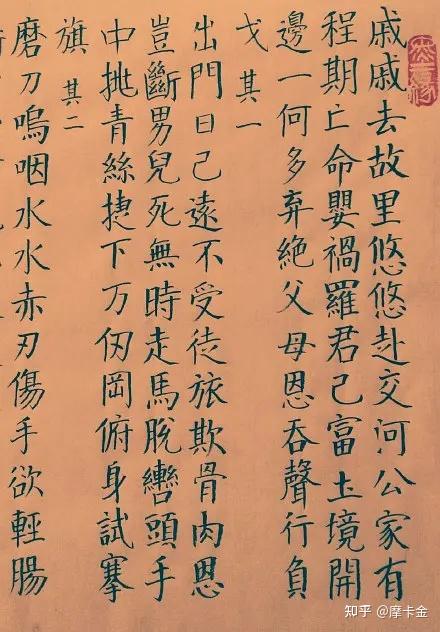 戚戚去故里悠悠赴交河公家有
程期亡命嬰禍羅君已富土境開
邊一何多弃絕父母恩吞聲行負
戈 其一
出門日已遠不受徒旅欺骨肉恩
豈斷男兒死無時走馬脫轡頭手
中挑青絲捷下万仞岡俯身試搴
旗 其二
磨刀嗚咽水水赤刃傷手欲輕腸
知乎 @摩卡金